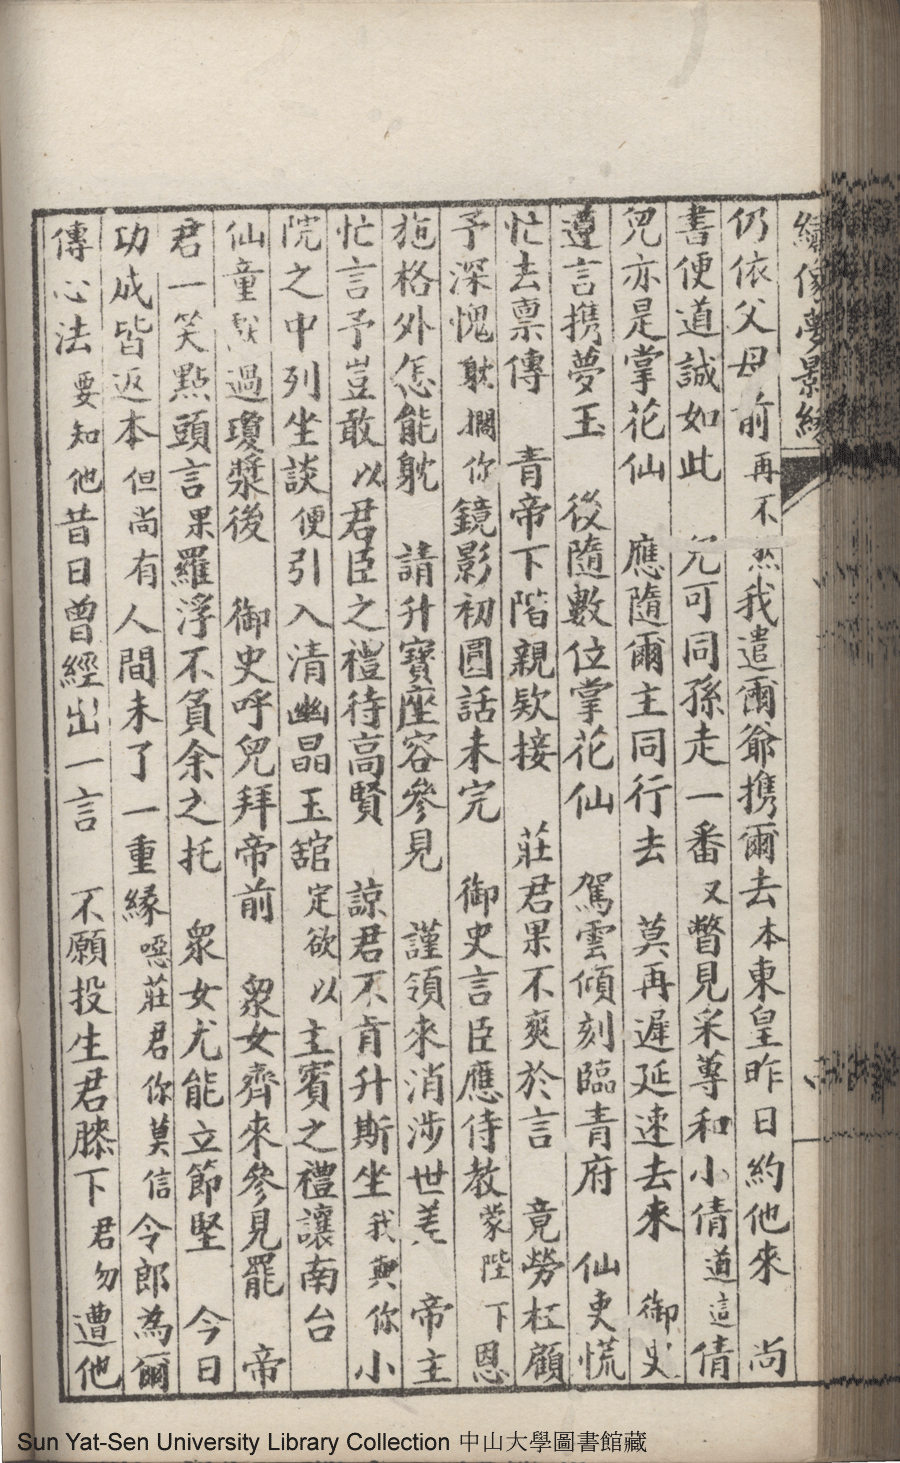 繡像夢景緣
仍依父母前再不然我遣爾爺携爾去本東皇昨日約他來　尚
書便道誠如此　兒可同孫走一番又瞥見采蓴和小倩道這倩
兒亦是掌花仙　應隨爾主同行去　莫再遲延速去來　御史
遵言携夢玉　後隨數位掌花仙　駕雲傾刻臨青府　仙吏慌
忙去禀傳　青帝下階親欵接　莊君果不爽於言　竟勞枉顧
予深愧躭擱你鏡影初圓話未完　御史言臣應侍教蒙陛下恩
施格外怎能躭　請升寶座容參見　謹領來消涉世差　帝主
忙言予豈敢以君臣之禮待高賢　諒君不肯升斯坐我與你小
院之中列坐談便引入清幽晶玉舘定欲以主賓之禮讓南台
仙童獻過瓊漿後　御史呼兒拜帝前　衆女齊來參見罷　帝
君一笑點頭言果羅浮不負余之托　衆女尤能立節堅　今日
功成皆返本但尚有人間未了一重緣噁莊君你莫信令郎為爾
傳心法要知他昔日曾經出一言　不願投生君膝下君勿遭他
Sun Yat-Sen University Library Collection 中山大學圖書館藏